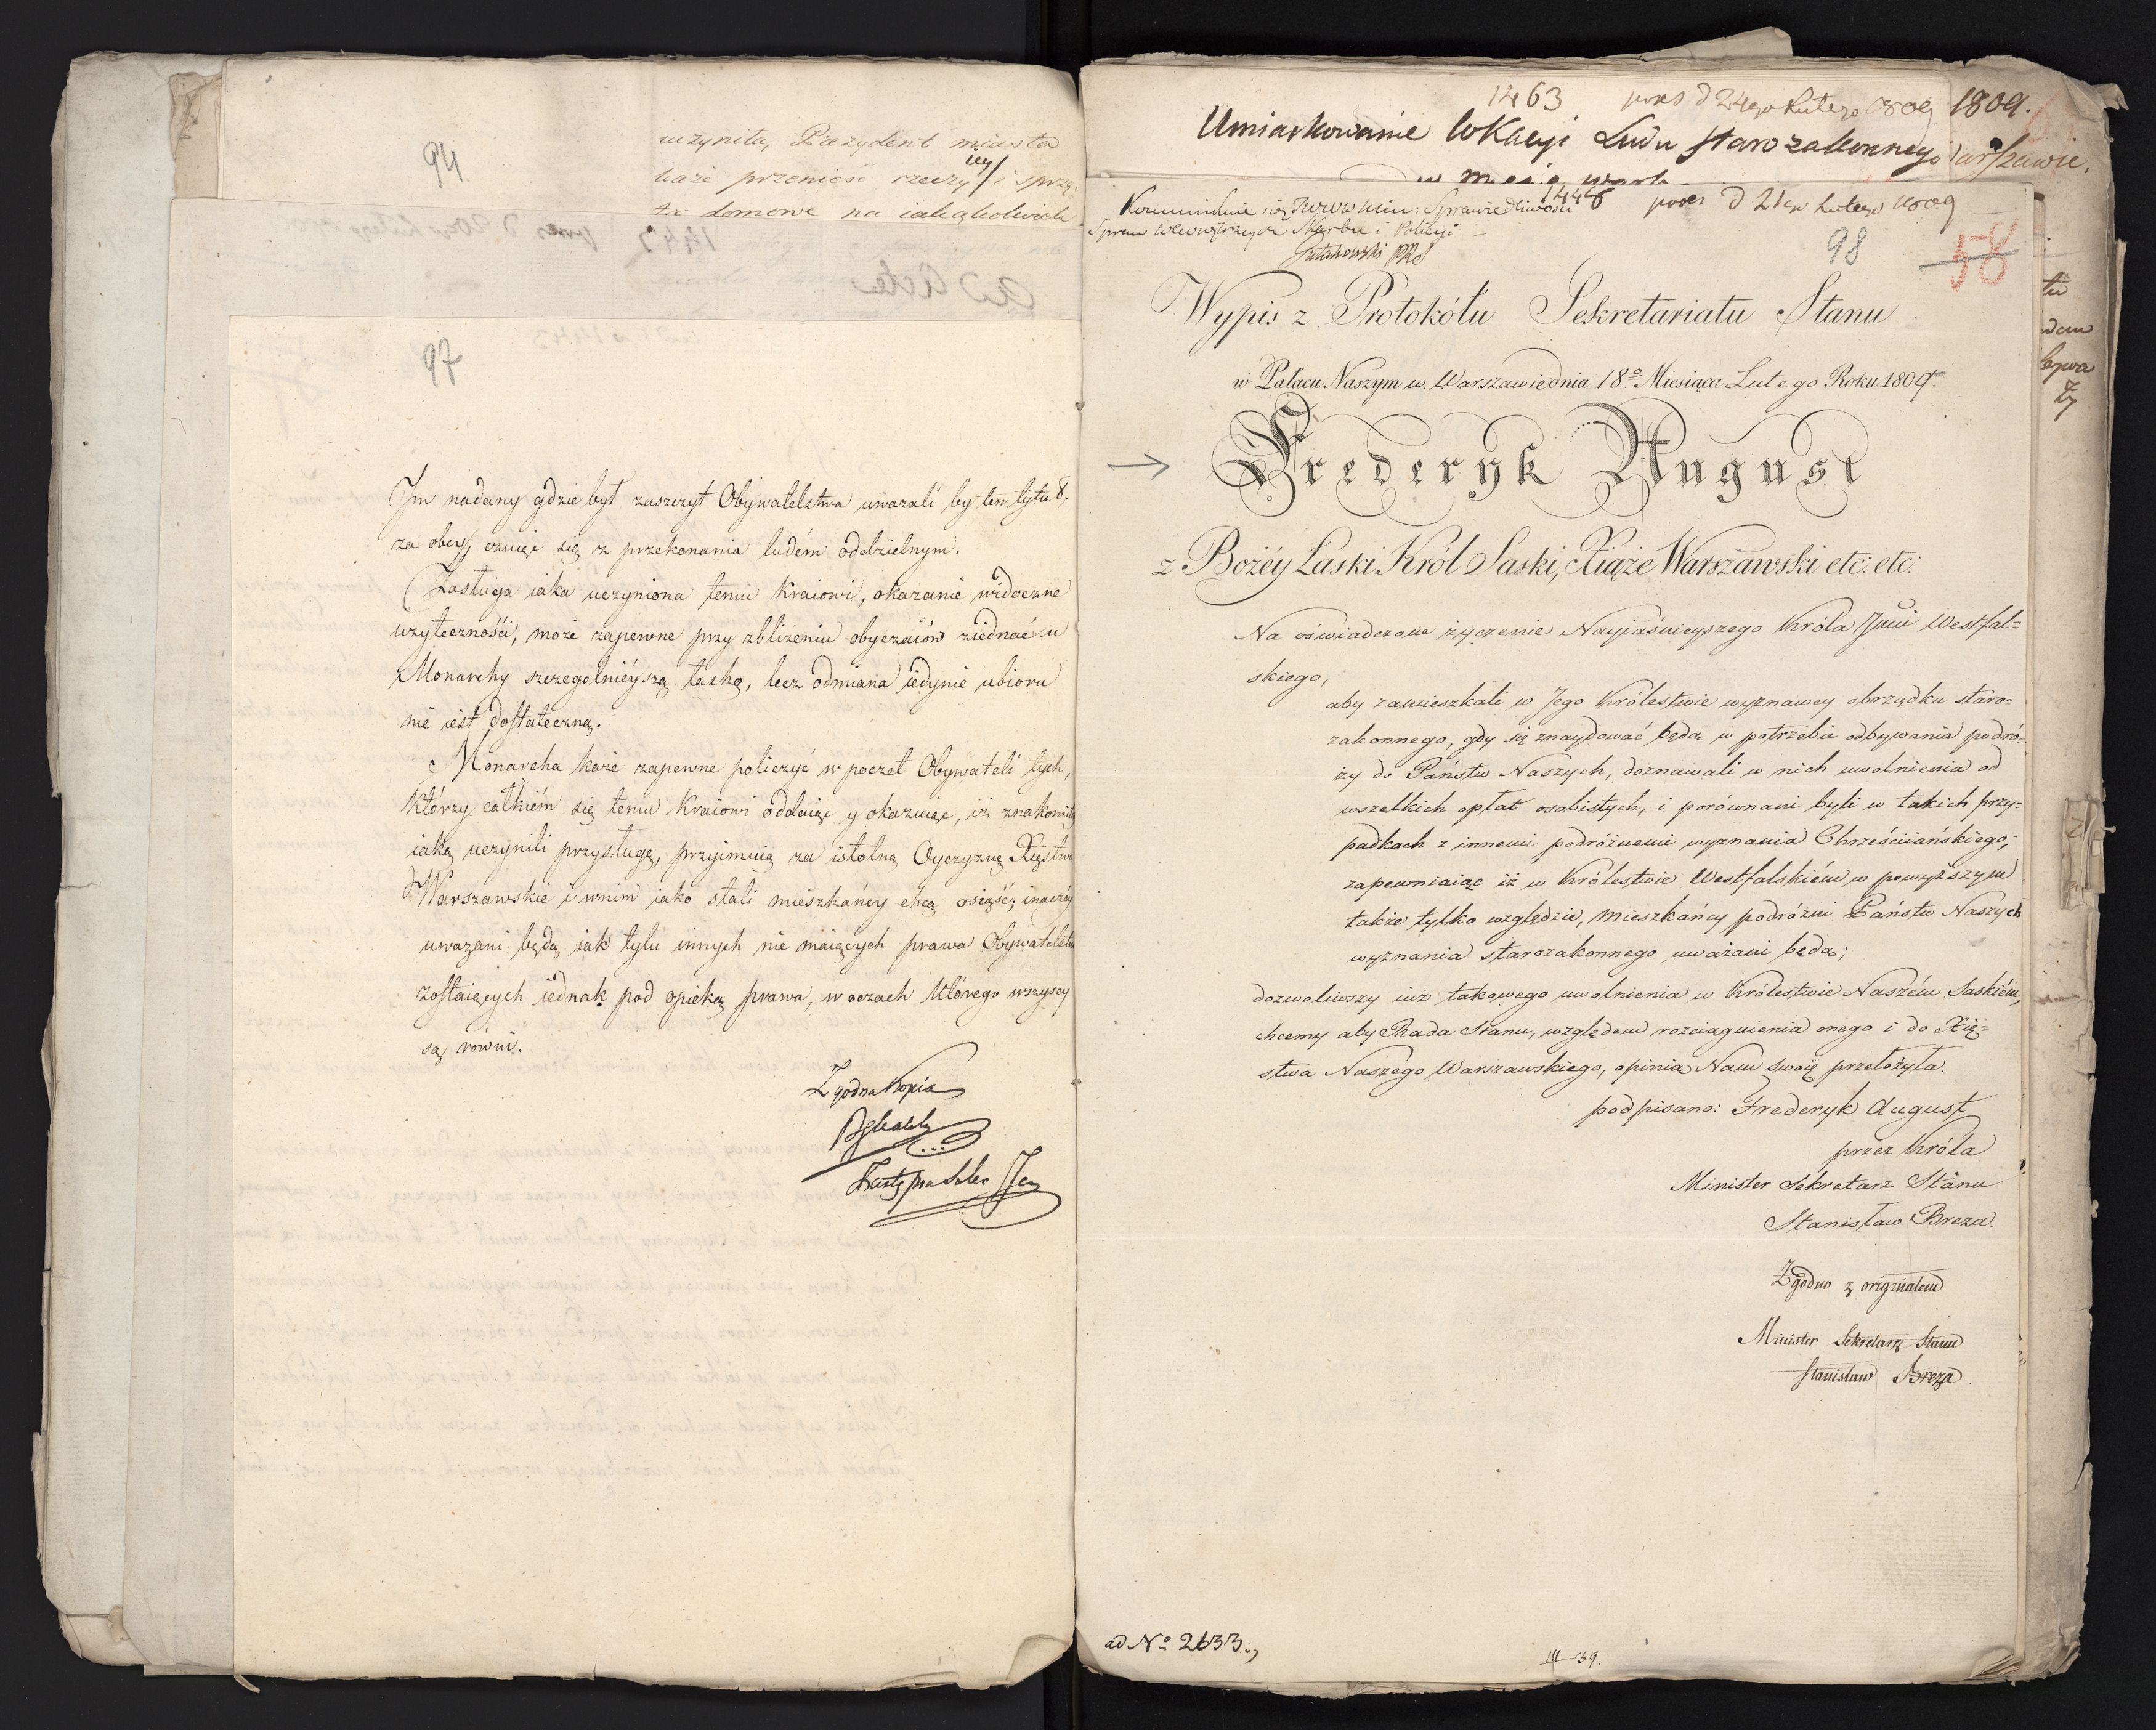 94
uczyniła, Prezydent miasta
każe przenieść rzeczy iey i sprzę-
ta domowe na iakąkolwiek
97
Im nadany gdzie był zaszczyt Obywatelstwa uwazali by ten tytuł
za obcy, czuiąc się z przekonania ludém oddzielnym.
Zasługa iaka uczyniona temu kraiowi, okazanie widoczne
uzyteczności, może zapewne przy zbliżeniu obyczaiów ziednać u
Monarchy szczegolnieyszą łaskę, lecz odmiana iedynie ubioru
nie iest dostateczną.
Monarcha każe zapewne policzyć w poczet Obywateli tych,
którzy całkiém się temu kraiowi oddaiąc y okazuiąc, iż znakomitą
iaką uczynili przysługę, przyimuią za istotną Oyczyznę Xięstwo
Warszawskie i w nim iako stali mieszkańcy chcą osieść; inaczéy
uwazani będą iak tylu innych nie maiących prawa Obywatelstwa
zostaiących iednak pod opieką prawa, w oczach którego wszyscy
są równi.
Zgodna Kopia
Zastępca Sekr Jen
1463 prces d 24go Lutego 1809 1809.
Umiarkowanie lokacyi Ludu starozakonnego
w Warszawie.
1448 prces d 21go Lutego 1809
Kommunikuie się JWW Min: Sprawiedliwości
Spraw Wewnętrznych Skarbu i Policyi
Gutakowski PRS
98 58
Wypis z Protokółu Sekretariatu Stanu
w Pałacu Naszym w Warszawie dnia 18º Miesiąca Lutego Roku 1809.
Frederyk August
z Bożéy Łaski Król Saski, Xiąże Warszawski etc: etc:
Na oświadczone życzenie Nayiaśnieyszego Króla Jmci Westfal-
skiego,
aby zamieszkali w Jego Królestwie wyznawcy obrządku staro-
zakonnego, gdy się znaydować będą w potrzebie odbywania podró-
ży do Państw Naszych, doznawali w nich uwolnienia od
wszelkich opłat osobistych, i porównani byli w takich przy-
padkach z innemi podróżnemi wyznania Chrześciańskiego;
zapewniaiąc iż w Królestwie Westfalskiém w powyższym
także tylko względzie, mieszkańcy podróżni Państw Naszych
wyznania starozakonnego uważani będą;
dozwoliwszy iuż takowego uwolnienia w Królestwie Naszém Saskiém,
chcemy aby Rada Stanu, względem rozciągnienia onego i do Xię-
stwa Naszego Warszawskiego, opinią Nam swoię przełożyła.
podpisano: Frederyk August
przez Króla
Minister Sekretarz Stanu
Stanisław Breza.
Zgodno z originałem
Minister Sekretarz Stanu
Stanisław Breza
ad Nº 2633.
III 39.